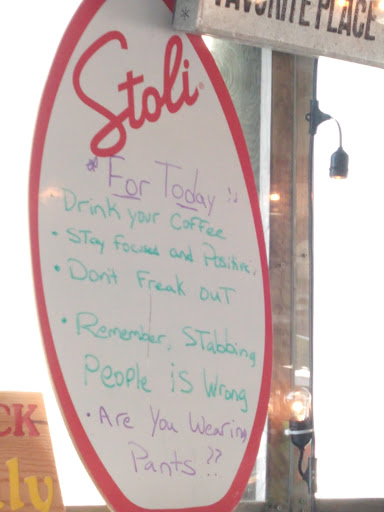 FAVORITE PLACE
Stoli
* For Today !!
• Drink your Coffee
• Stay Focused and Positive!
• Dont Freak out
• Remember, Stabbing
People is Wrong
• Are You Wearing
Pants ??
CK
ly